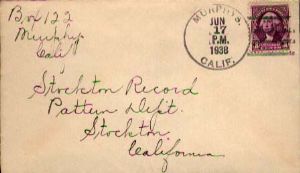 Box 122
Murphys
Calif
MURPHYS.
JUN
17
P.M.
1938
CALIF.
Stockton Record
Pattern Dept.
Stockton
California